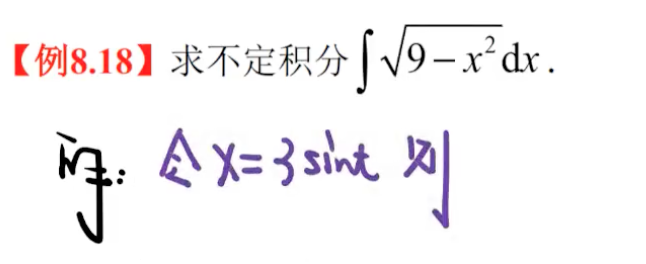 【例8.18】求不定积分∫√(9−x²)dx.
解：令x=3sint 则